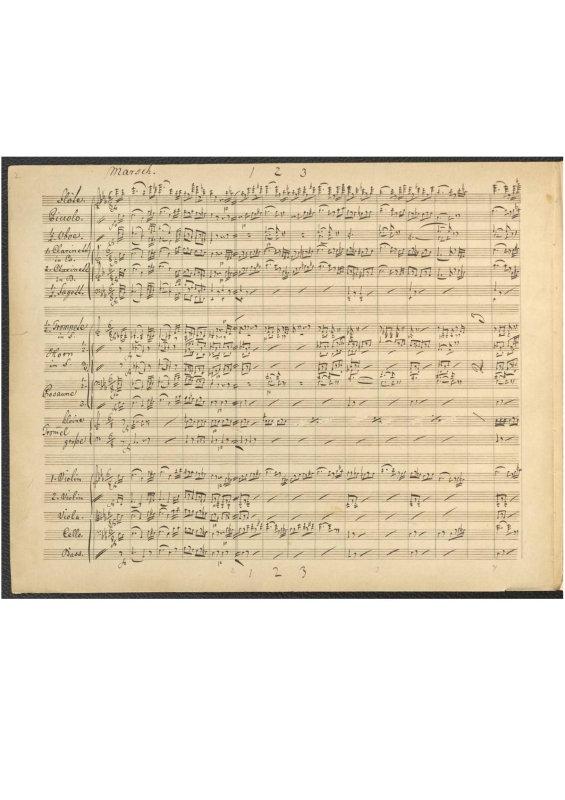 2
Marsch.
1 2 3
Flöte.
Piccolo.
½ Oboe.
1. Clarinett
in B.
2. Clarinett
in B.
½ Fagott.
½ Trompete
in F.
Horn
in F.
1.
2.
Posaune
3.
kleine
Tromel
große
1. Violin
2. Violin
Viola.
Cello.
Bass.
1 2 3